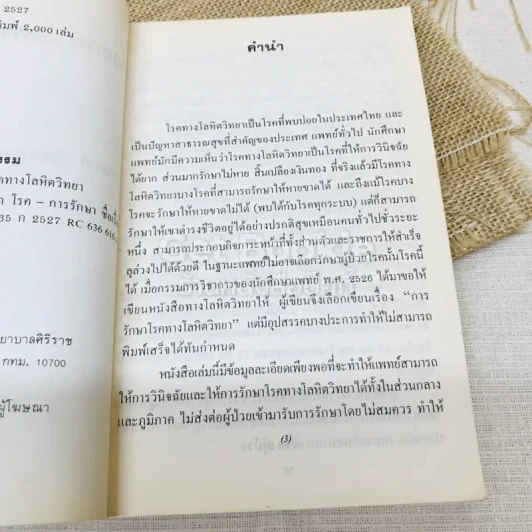 2527
พิมพ์ 2,000 เล่ม
โรคทางโลหิตวิทยา
โรค – การรักษา
35 ก 2527 RC 636
พยาบาลศิริราช
กทม. 10700
ผู้โฆษณา
คำนำ
โรคทางโลหิตวิทยาเป็นโรคที่พบบ่อยในประเทศไทย และ
เป็นปัญหาสาธารณสุขที่สำคัญของประเทศ แพทย์ทั่วไป นักศึกษา
แพทย์มักมีความเห็นว่าโรคทางโลหิตวิทยาเป็นโรคที่ให้การวินิจฉัย
ได้ยาก ส่วนมากรักษาไม่หาย สิ้นเปลืองเงินทอง ที่จริงแล้วมีโรคทาง
โลหิตวิทยาบางโรคที่สามารถรักษาให้หายขาดได้ และถึงแม้โรคบาง
โรคจะรักษาให้หายขาดไม่ได้ (พบได้กับโรคทุกระบบ) แต่ก็สามารถ
รักษาให้เขาดำรงชีวิตอยู่ได้อย่างปรกติสุขเหมือนคนทั่วไปชั่วระยะ
หนึ่ง สามารถประกอบกิจการะหน้าที่ทั้งส่วนตัวและราชการให้สำเร็จ
ลุล่วงไปได้ด้วยดี ในฐานะแพทย์ไม่อาจเลือกรักษาผู้ป่วยโรคนั้นโรคนี้
ได้ เมื่อกรรมการวิชาการของนักศึกษาแพทย์ พ.ศ. 2526 ได้มาขอให้
เขียนหนังสือทางโลหิตวิทยาให้ ผู้เขียนจึงเลือกเขียนเรื่อง “การ
รักษาโรคทางโลหิตวิทยา” แต่มีอุปสรรคบางประการทำให้ไม่สามารถ
พิมพ์เสร็จได้ทันกำหนด
หนังสือเล่มนี้มีข้อมูลละเอียดเพียงพอที่จะทำให้แพทย์สามารถ
ให้การวินิจฉัยและให้การรักษาโรคทางโลหิตวิทยาได้ทั้งในส่วนกลาง
และภูมิภาค ไม่ส่งต่อผู้ป่วยเข้ามารับการรักษาโดยไม่สมควร ทำให้
(3)